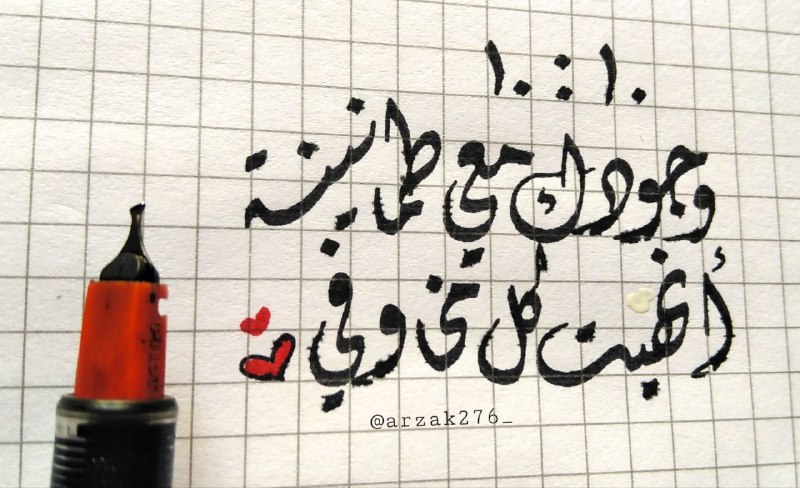 ١٠:١٠
وجودك معي طمانينة
أنهيت كل مخوفي
@arzak276_